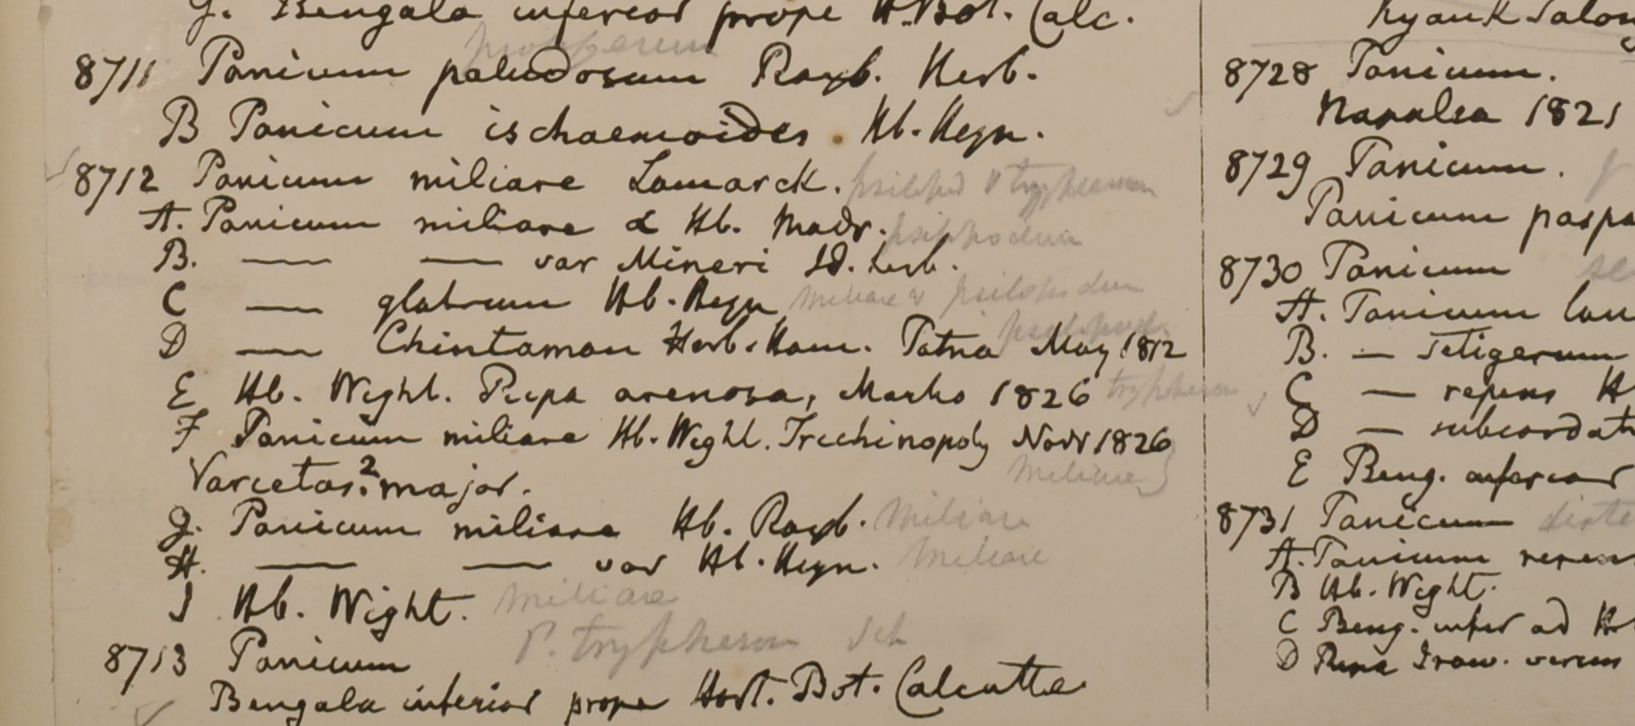 G. Bengala inferior prope H. Bot. Calc.
8711 Panicum paludosum Roxb. Herb.
B Panicum ischaemoides. Hb. Heyn.
8712 Panicum miliare Lamarck.
A. Panicum miliare α Hb. Madr.
B. — — var Mineri Id. herb.
C — glabrum Hb. Heyn miliare & psilopodium
D — Chintaman Herb. Ham. Patna May 1812
E Hb. Wight. Ripa arenosa, Martio 1826 trypheron
F Panicum miliare Hb. Wight. Trichinopoly Novr 1826
Varietas? major. miliare
G. Panicum miliare Hb. Roxb. miliare
H. — — var Hb. Heyn. miliare
I Hb. Wight. miliare
P. trypheron Sch
8713 Panicum
Bengala inferior prope Hort. Bot. Calcutta
8728 Panicum.
Napalea 1821
8729 Panicum.
Panicum paspa
8730 Panicum
A. Panicum
B. — setigerum
C — repens H
D — subcordat
E Beng. inferior
8731 Panicum
A. Panicum repen
B Hb. Wight.
C Beng. infer ad H
D Ripa Iraw.